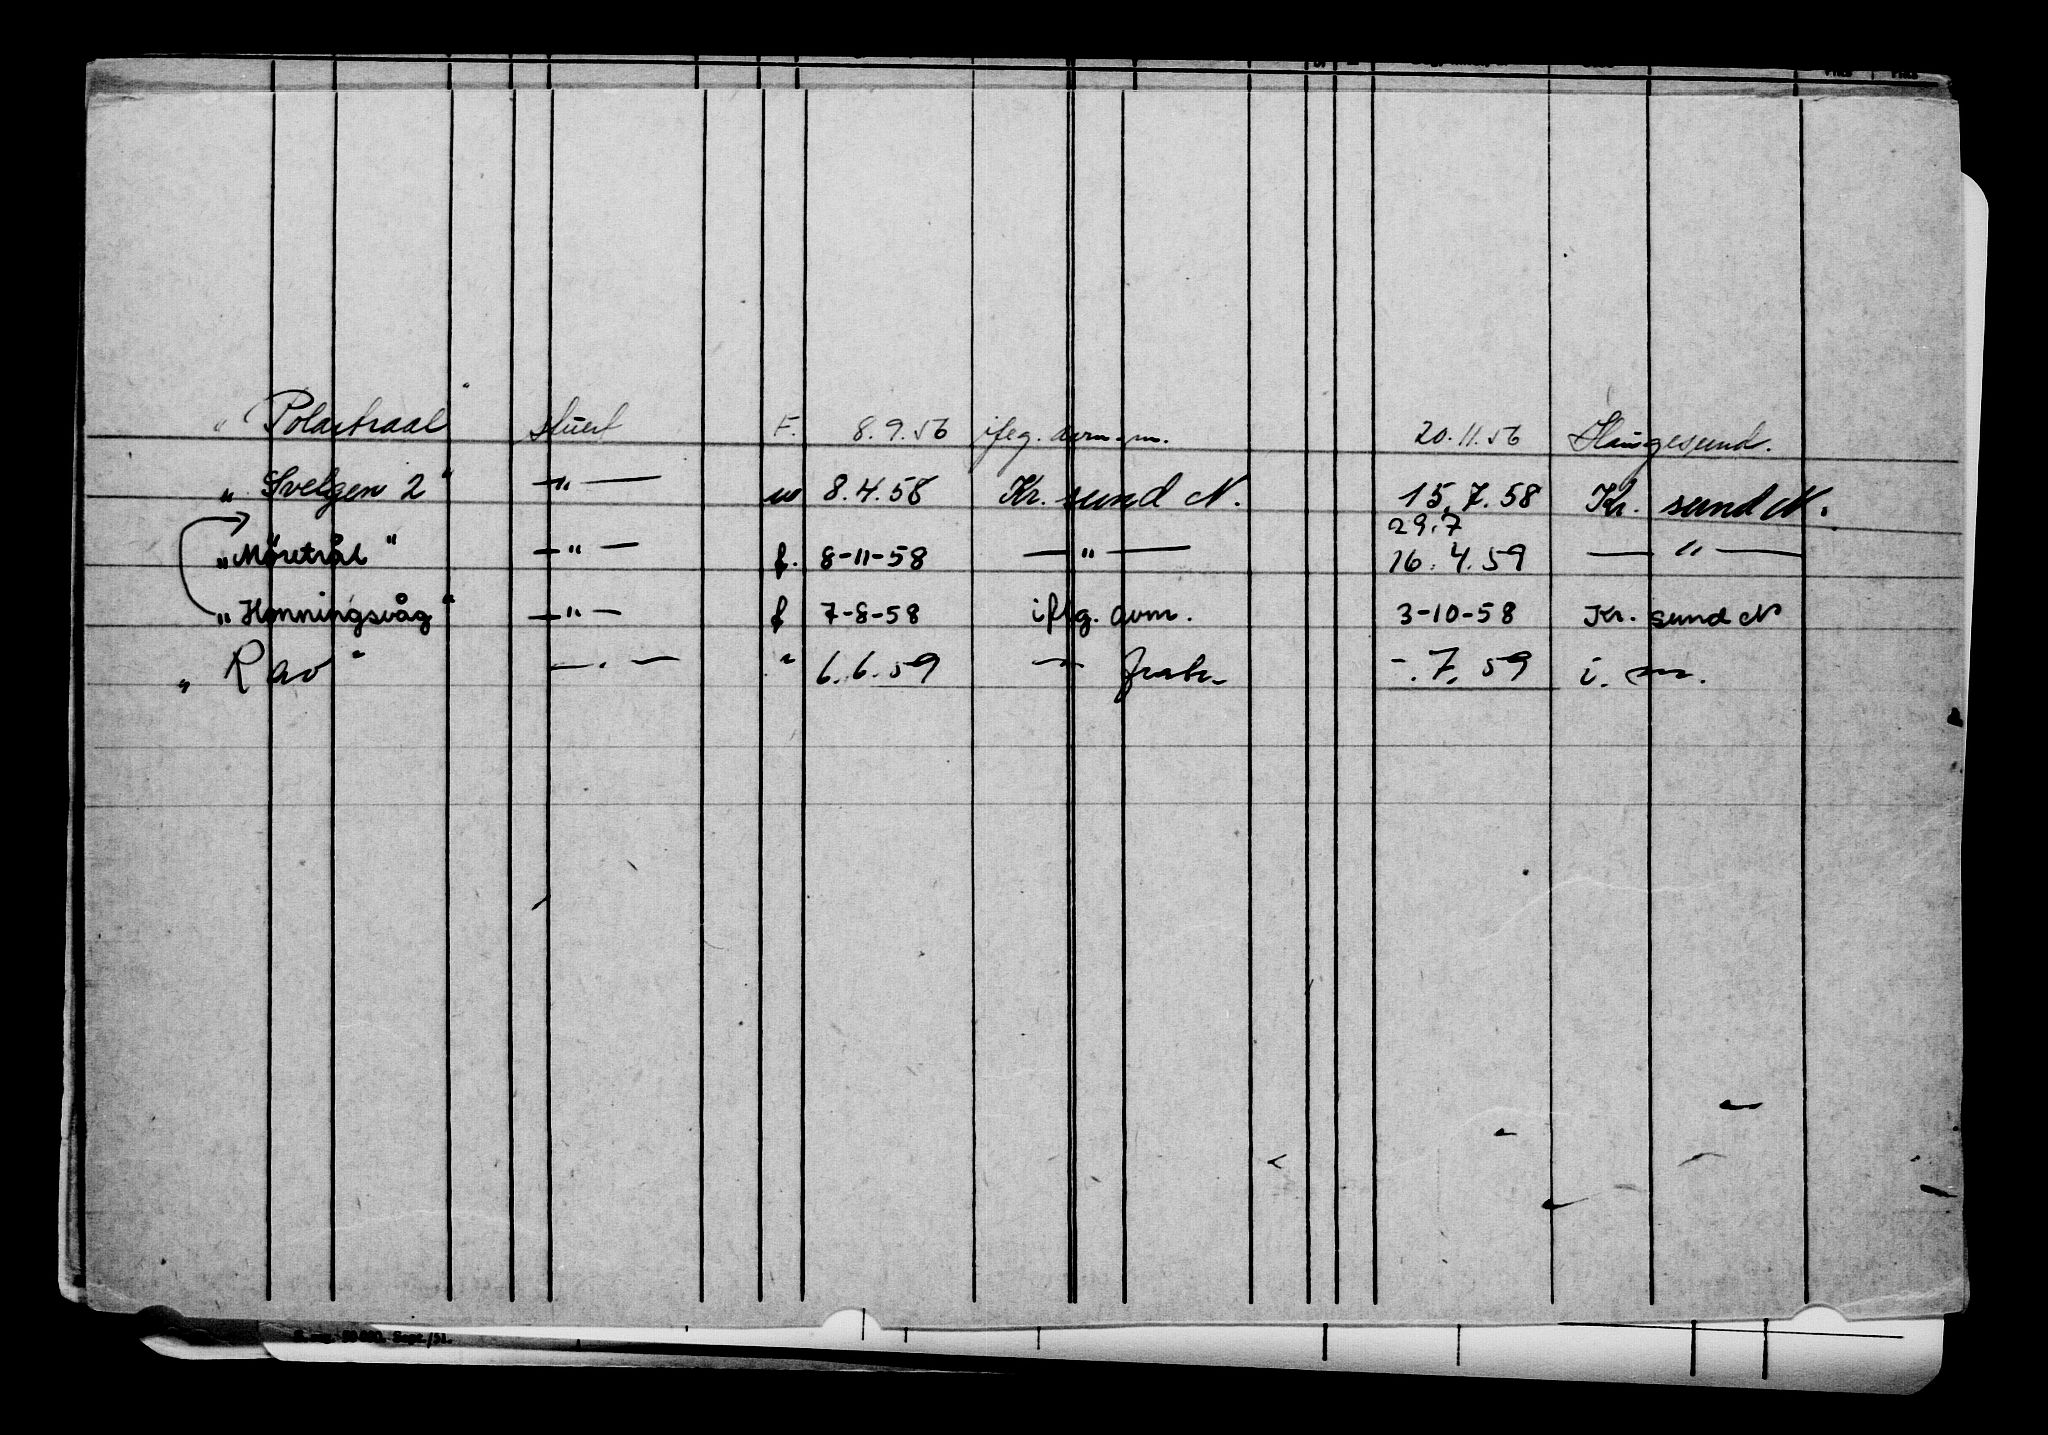 „ Polartraal " stuert F. 8.9.56 ifølg. avm. m. 20.11.56 Haugesund.
„ Svelgen 2 " — " — m 8.4.58 Kr. sund N. 15.7.58 Kr. sund N.
29.7
„ Møretrål " — " — f. 8-11-58 — " — 16.4.59 — " —
„ Honningsvåg " — " — f 7-8-58 iflg. avm. 3-10-58 Kr. sund N
„ Rav " — " — " 6.6.59 — " — -.7.59 i. m.
Sept./51.